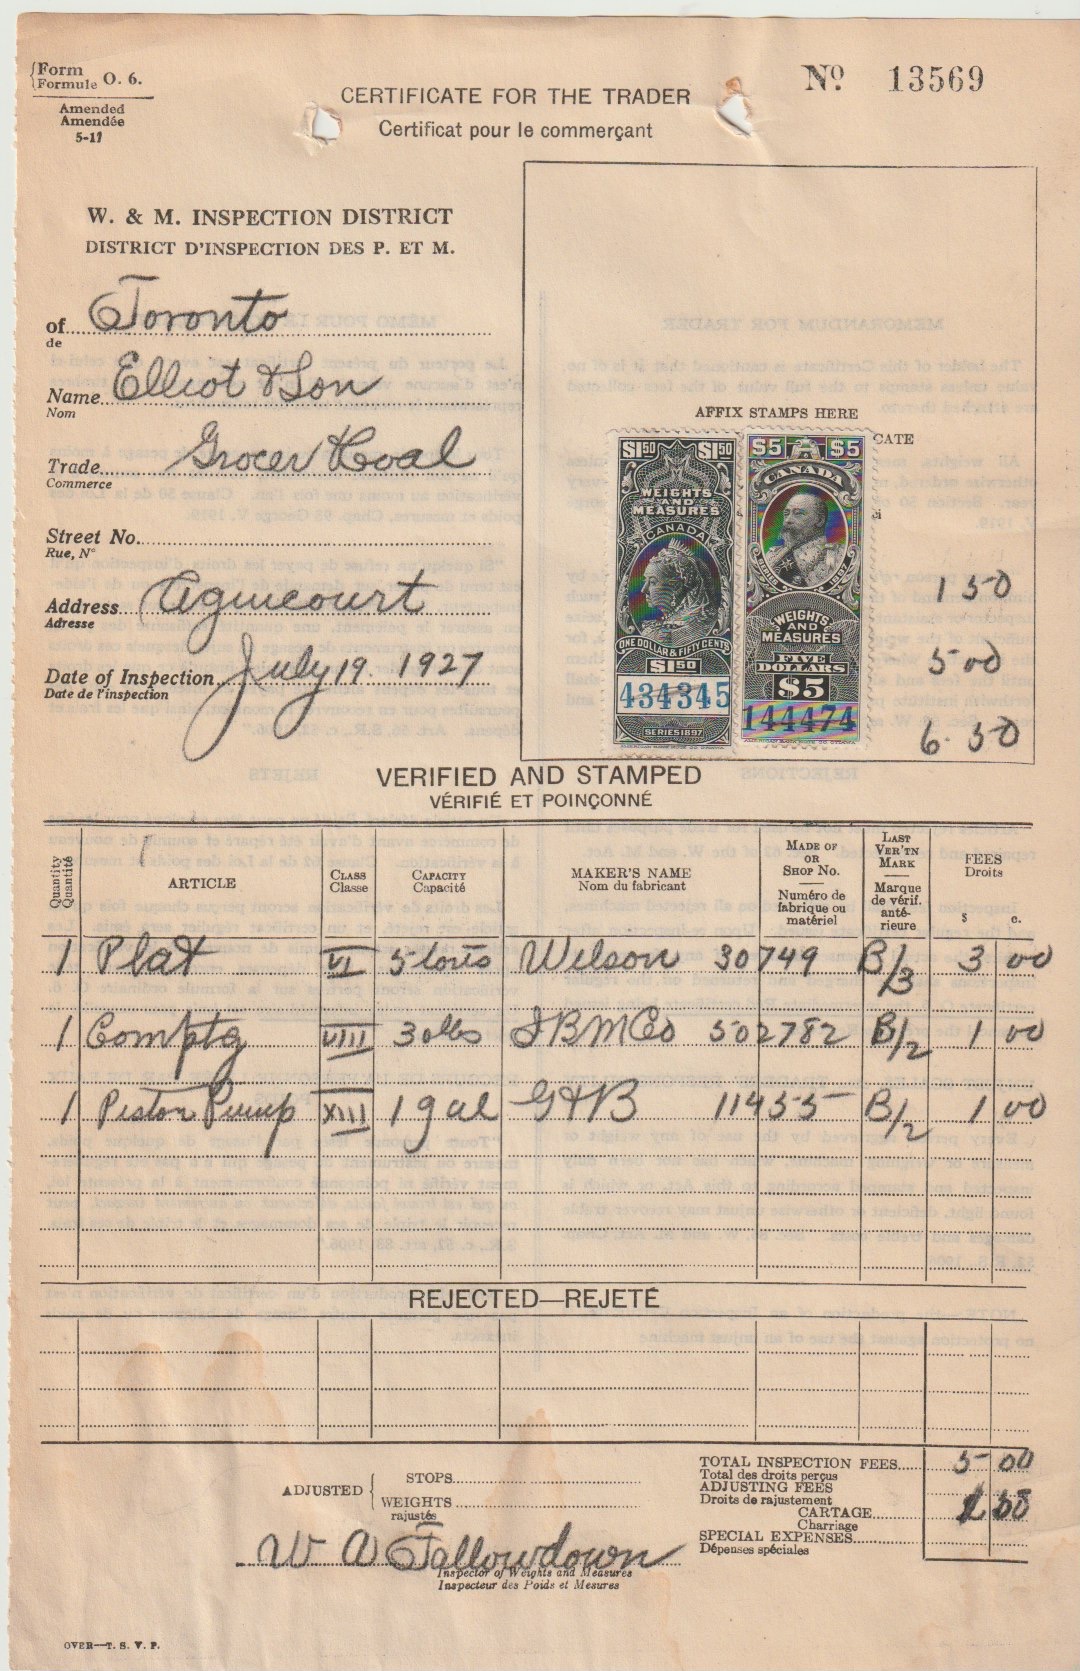 Form
Formule O. 6.
Amended
Amendée
5-17
CERTIFICATE FOR THE TRADER
Certificat pour le commerçant
Nº 13569
W. & M. INSPECTION DISTRICT
DISTRICT D'INSPECTION DES P. ET M.
of Toronto
de
Name Elliot & Son
Nom
Trade Grocer & Coal
Commerce
Street No.
Rue, Nº
Address Agincourt
Adresse
Date of Inspection July 19. 1927
Date de l'inspection
AFFIX STAMPS HERE
CATE
$1.50 $1.50
WEIGHTS
AND
MEASURES
CANADA
ONE DOLLAR & FIFTY CENTS
$1.50
434345
SERIES 1897
$5 $5
CANADA
WEIGHTS
AND
MEASURES
FIVE
DOLLARS
$5
144474
1 50
5 00
6. 50
VERIFIED AND STAMPED
VÉRIFIÉ ET POINÇONNÉ
Quantity
Quantité
ARTICLE
CLASS
Classe
CAPACITY
Capacité
MAKER'S NAME
Nom du fabricant
MADE OF
OR
SHOP No.
Numéro de
fabrique ou
matériel
LAST
VER'TN
MARK
Marque
de vérif.
anté-
rieure
FEES
Droits
$ c.
1 Plat VI 5 tons Wilson 30749 B/3 3 00
1 Comptg VIII 30 lbs IBMCo 502782 B/2 1 00
1 Piston Pump XIII 1 gal G&B 11455 B/2 1 00
REJECTED—REJETÉ
ADJUSTED
STOPS
WEIGHTS
rajustés
TOTAL INSPECTION FEES 5 00
Total des droits perçus
ADJUSTING FEES
Droits de rajustement
CARTAGE
Charriage
SPECIAL EXPENSES
Dépenses spéciales
W A Fallowdown
Inspector of Weights and Measures
Inspecteur des Poids et Mesures
OVER—T. S. V. P.